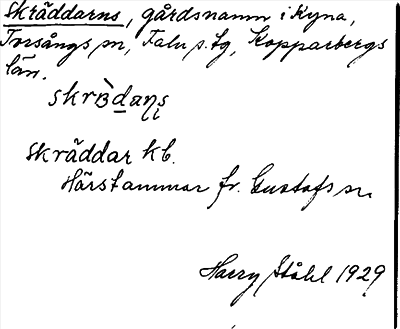 Skräddarns, gårdsnamn i Kyna,
Torsångs sn, Falu s. tg, Kopparbergs
län.
skrὰdaṇṣ
Skräddar kb.
Härstammar fr. Gustafs sn
Harry Ståhl 1929